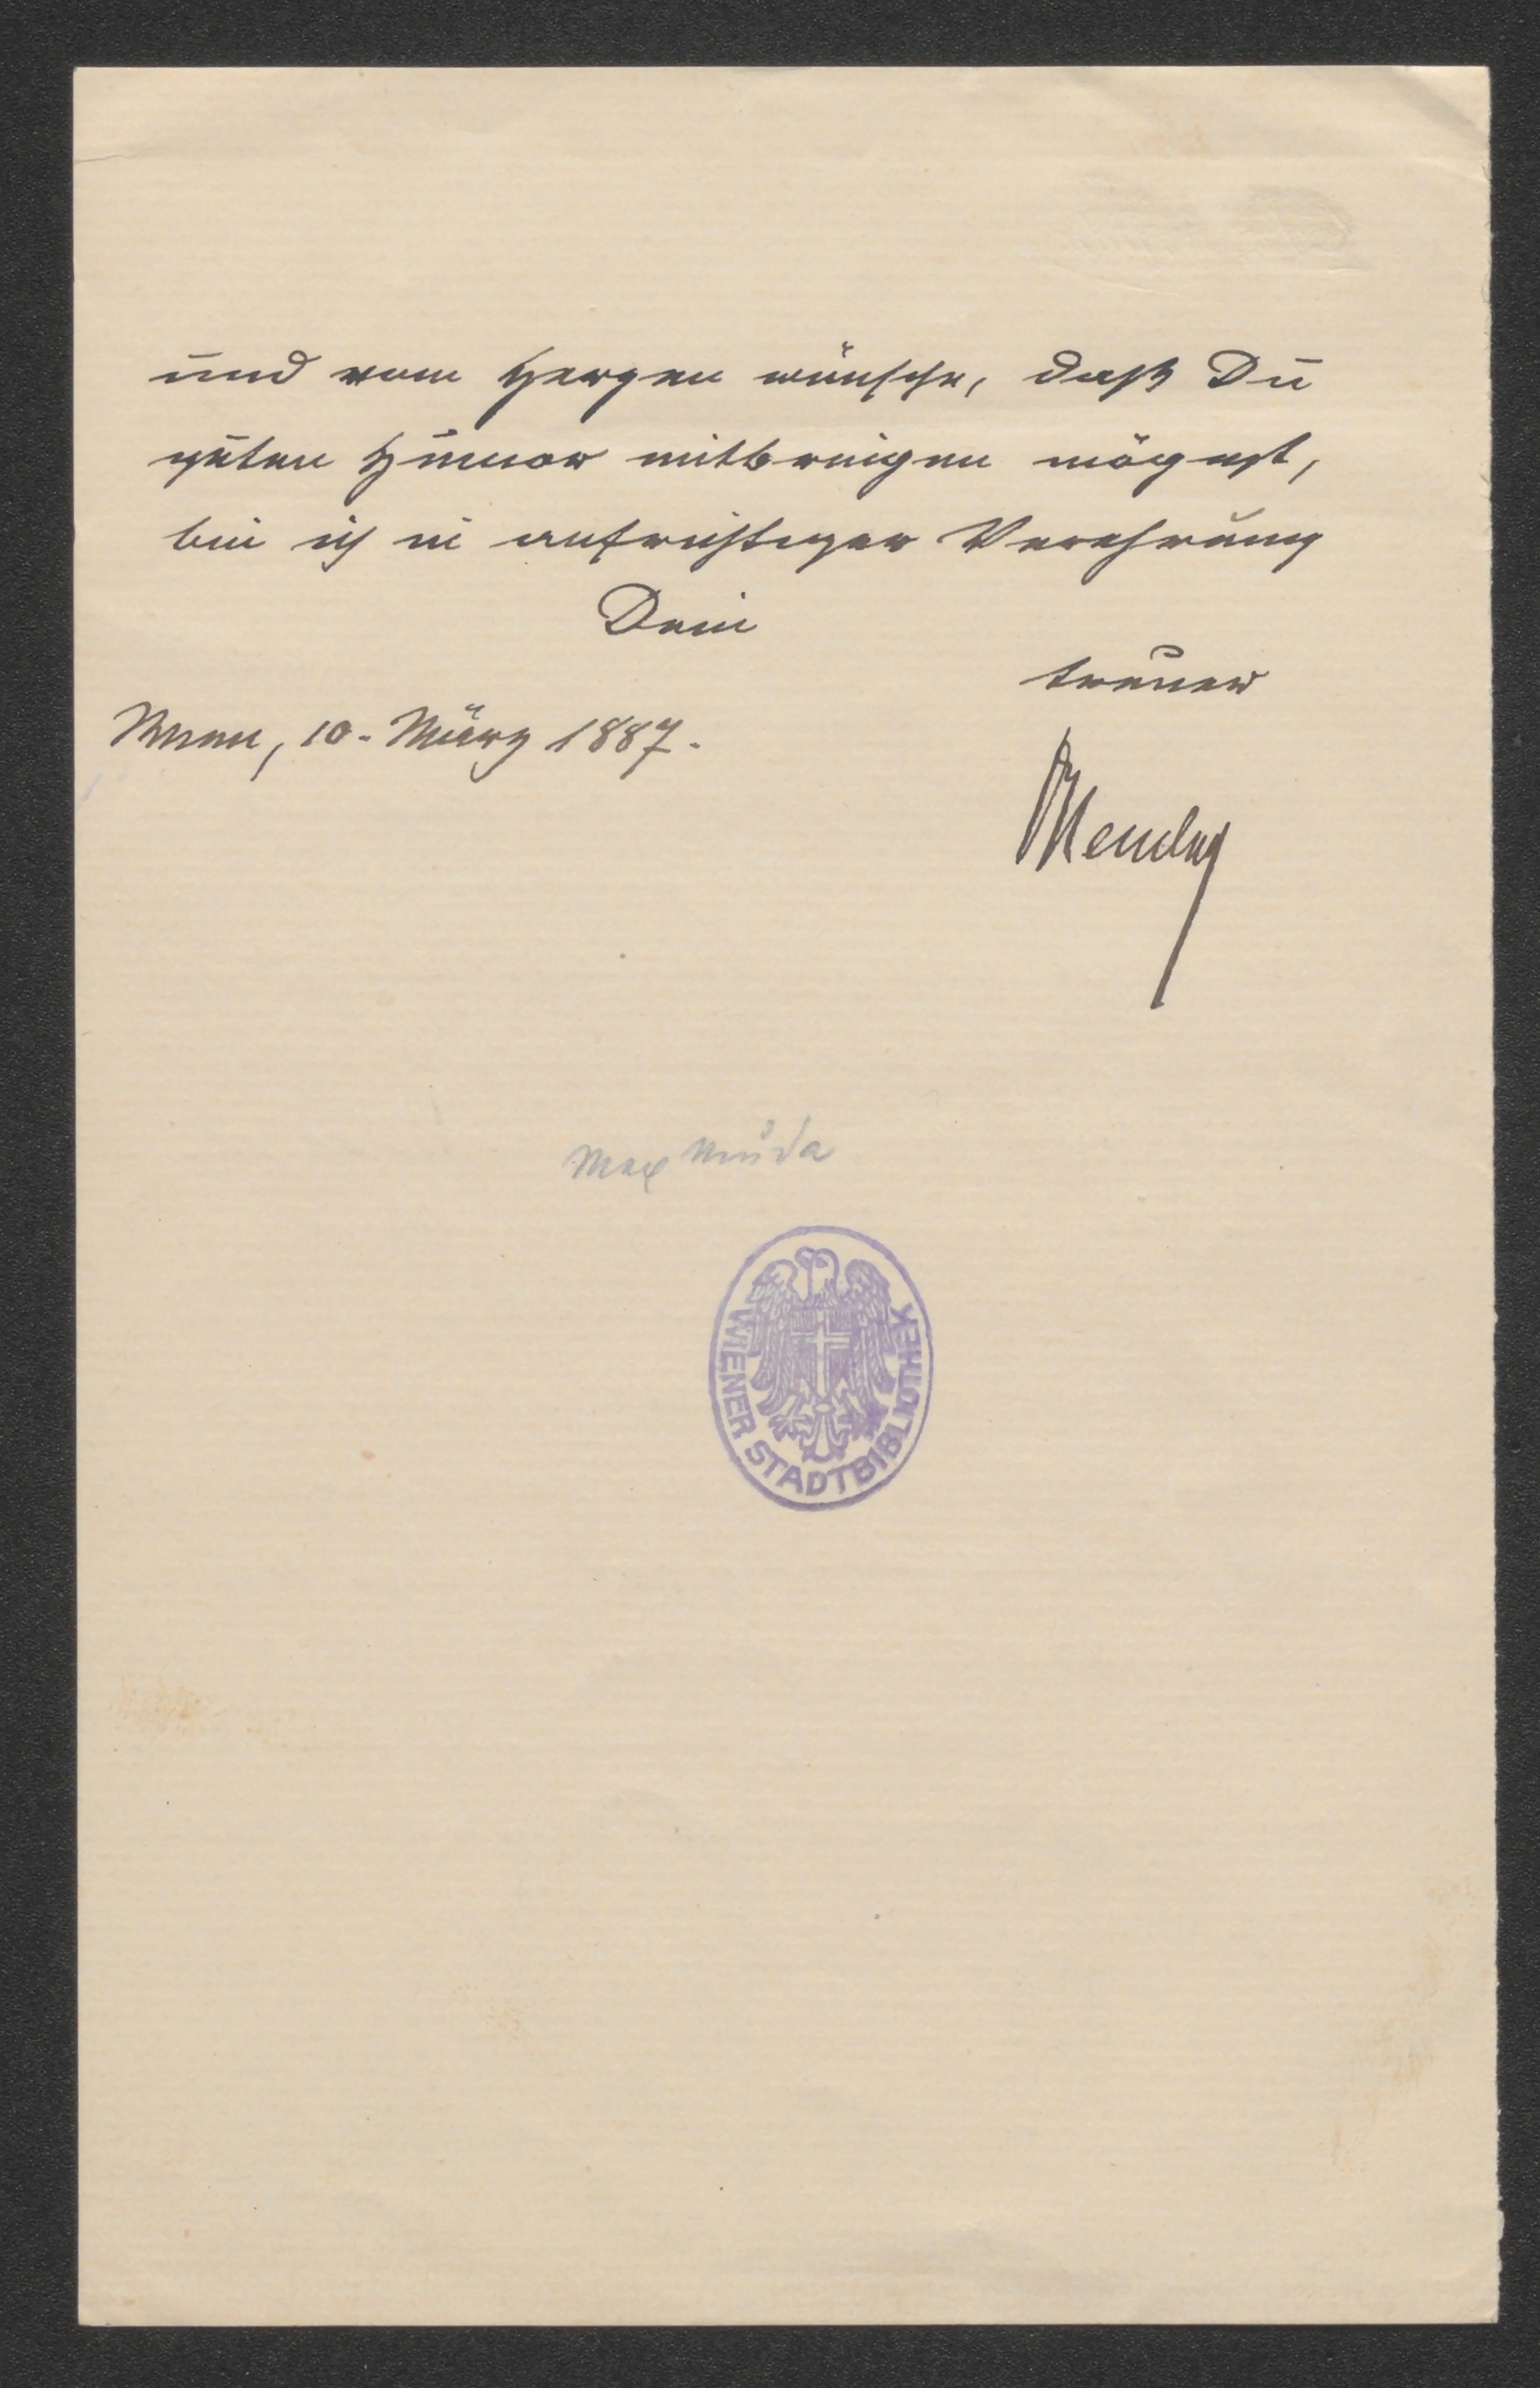 und vom Herzen wünsche, daß Du
guten Humor mitbringen mögest,
bin ich in aufrichtiger Verehrung
Dein
treuer
Wien, 10. März 1887.
Max
WIENER STADTBIBLIOTHEK